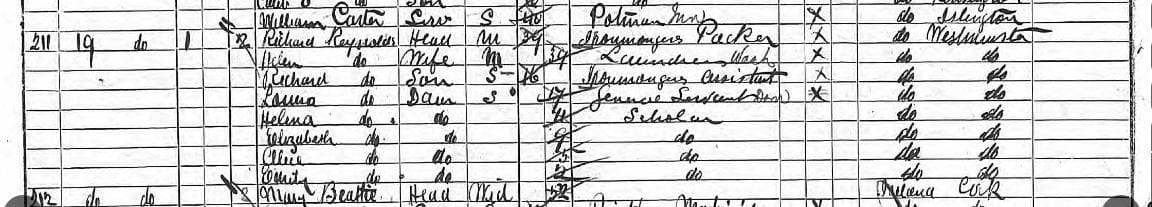 William Carter Serv S 40 Potman Inn X do Islington
211 19 do 1 Richard Reynolds Head M 39 Ironmongers Packer X do Westminster
Helen do Wife M 39 Laundress Wash X do do
Richard do Son S 16 Ironmongers Assistant X do do
do Daur S 17 General Servant Dom X do do
Helena do do 11 Scholar do do
Elizabeth do do 9 do do do
do do 5 do do do
do do do do do
212 do do Mary Beattie Head Wid 52 Ireland Cork